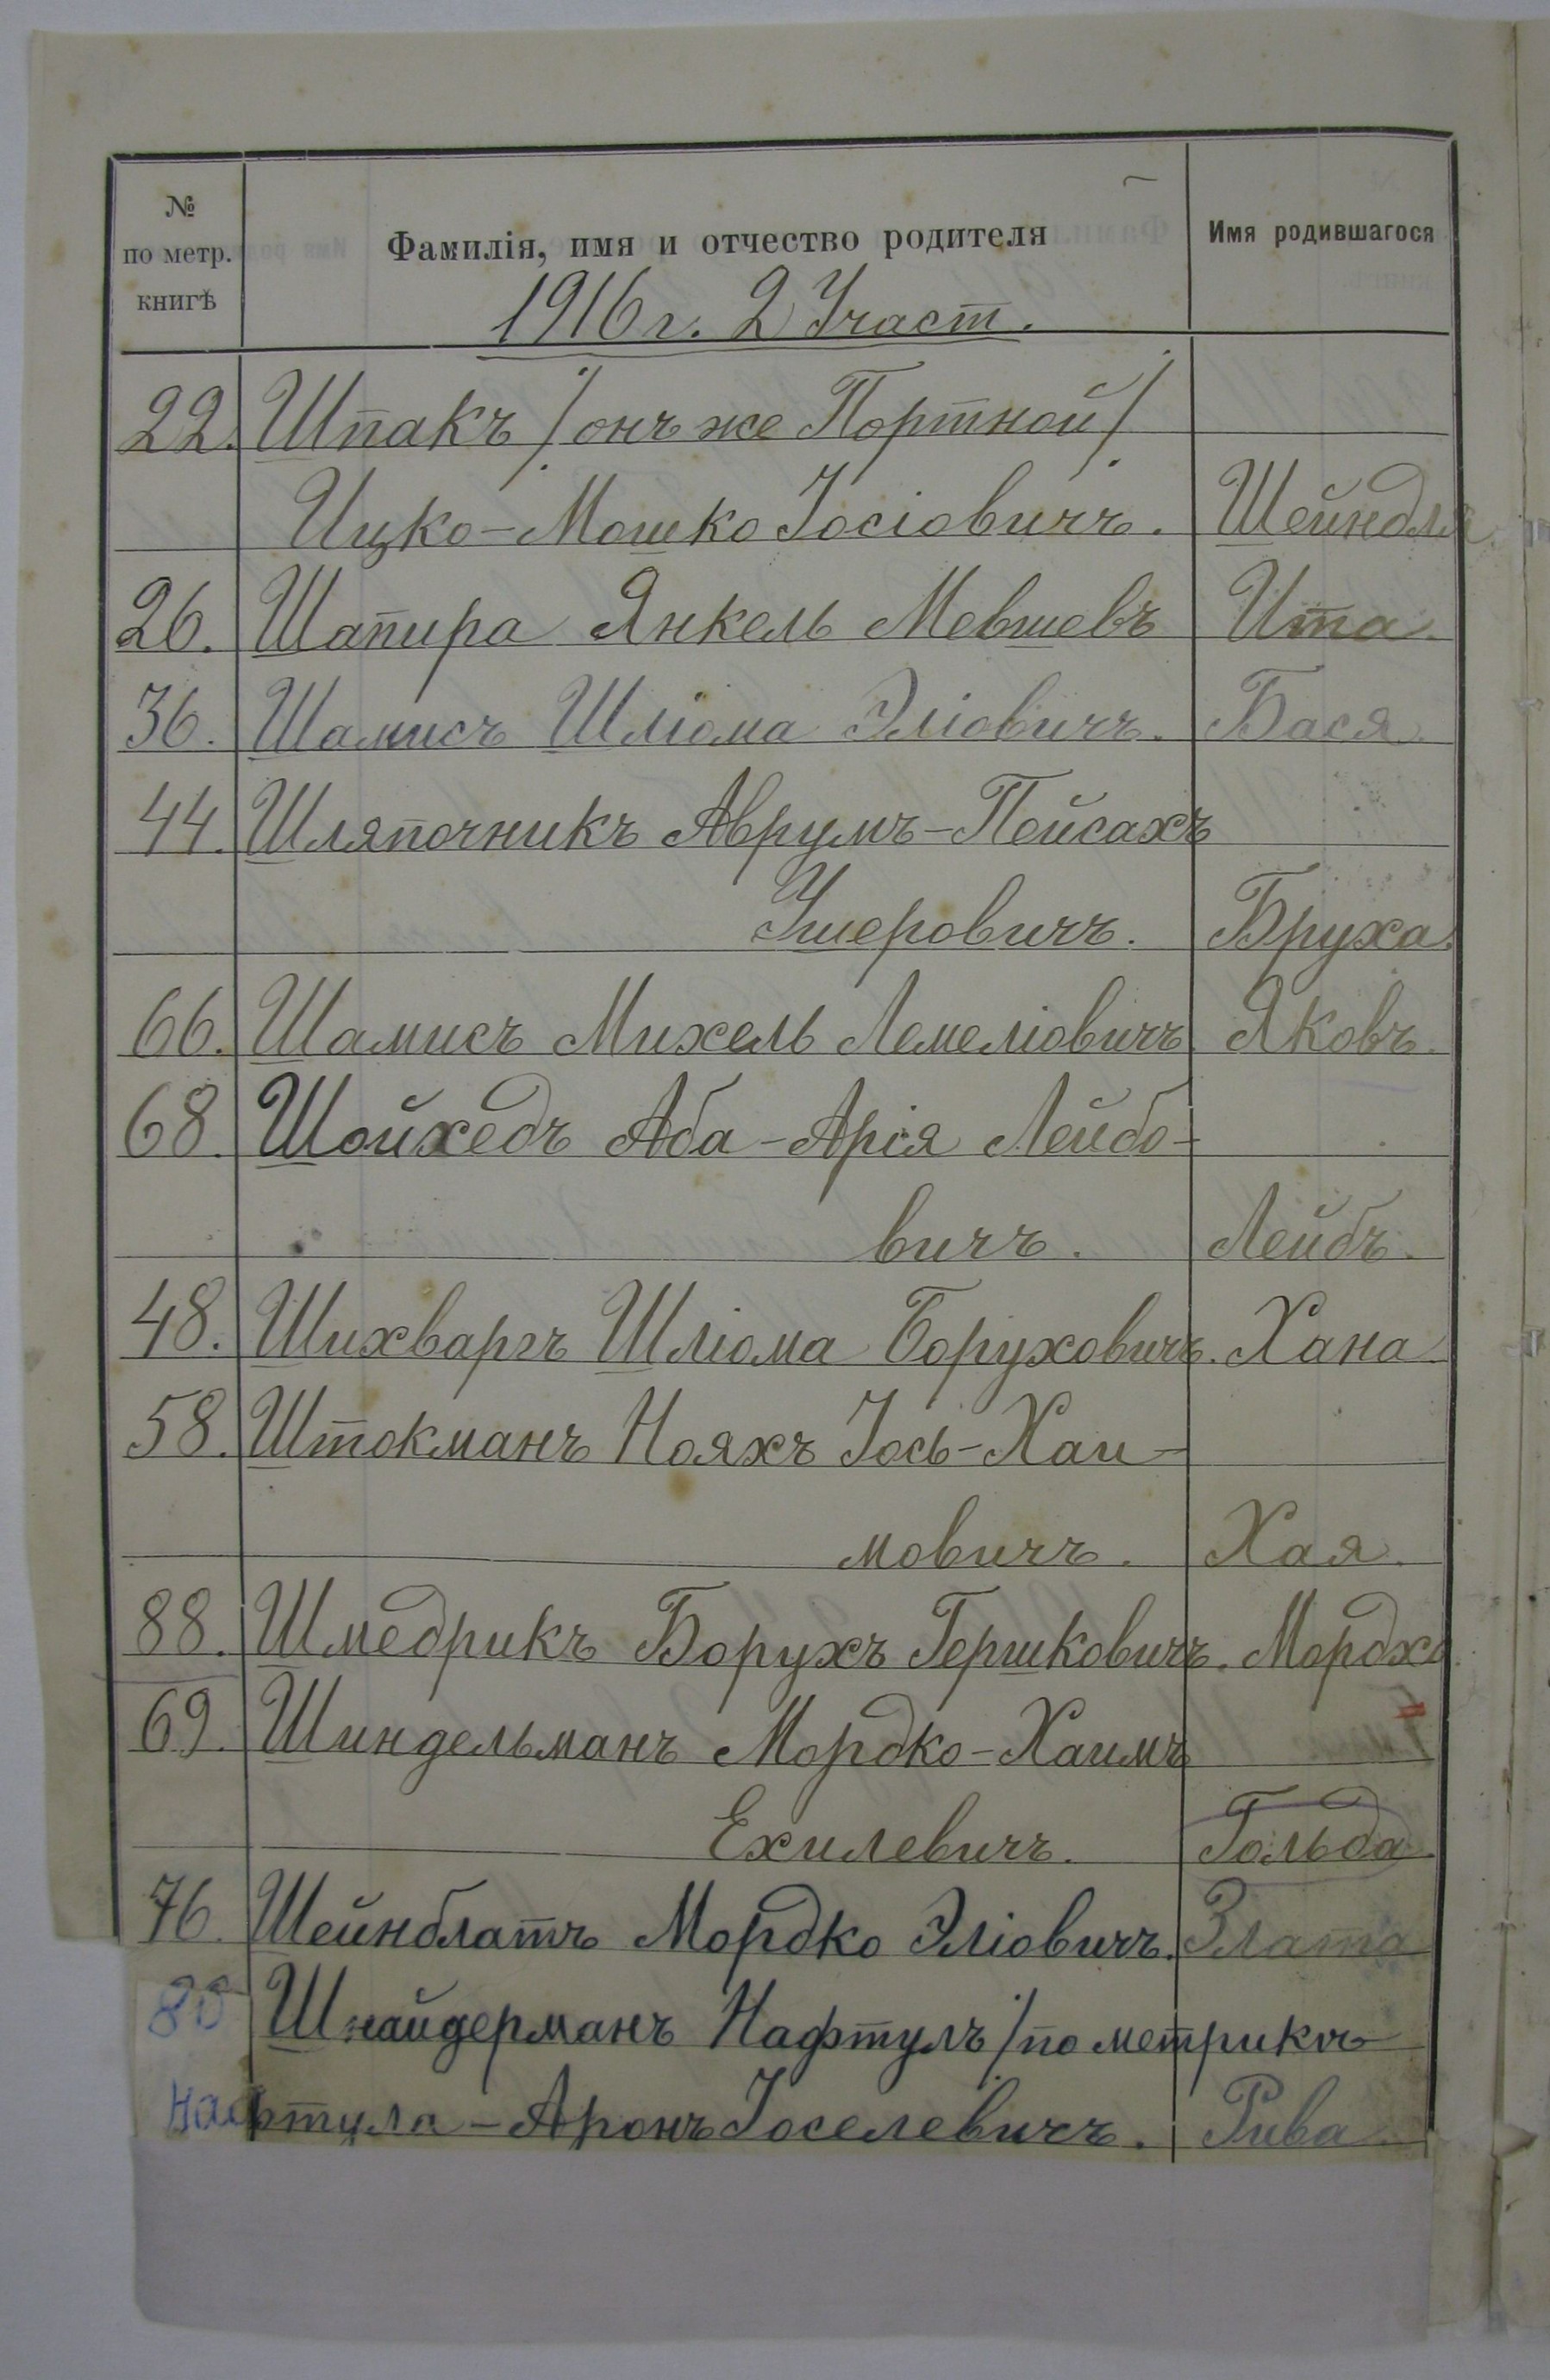 № по метр. книгѣ
Фамилія, имя и отчество родителя
Имя родившагося
1916 г. 2 Участ.
22. Шпакъ /онъ же Портной/
Ицко-Мошко Іосіовичъ. Шейндля
26. Шапира Янкель Мевшевъ Ита.
36. Шамисъ Шліома Эліовичъ. Бася.
44. Шляпочникъ Аврумъ-Пейсахъ
Ушеровичъ. Бруха.
66. Шамисъ Михель Лемеліовичъ Яковъ.
68. Шойхедъ Аба-Арія Лейбо-
вичъ. Лейбъ.
48. Шихваргъ Шліома Боруховичъ. Хана.
58. Штокманъ Нояхъ Іось-Хаи-
мовичъ. Хая.
88. Шмедрикъ Борухъ Гершковичъ. Мордхо
69. Шиндельманъ Мордко-Хаимъ
Ехилевичъ. Гольда.
76. Шейнблатъ Мордко Эліовичъ. Злата
Шнайдерманъ Нафтулъ /по метрикѣ
Нафтула-Аронъ Іоселевичъ. Рива.